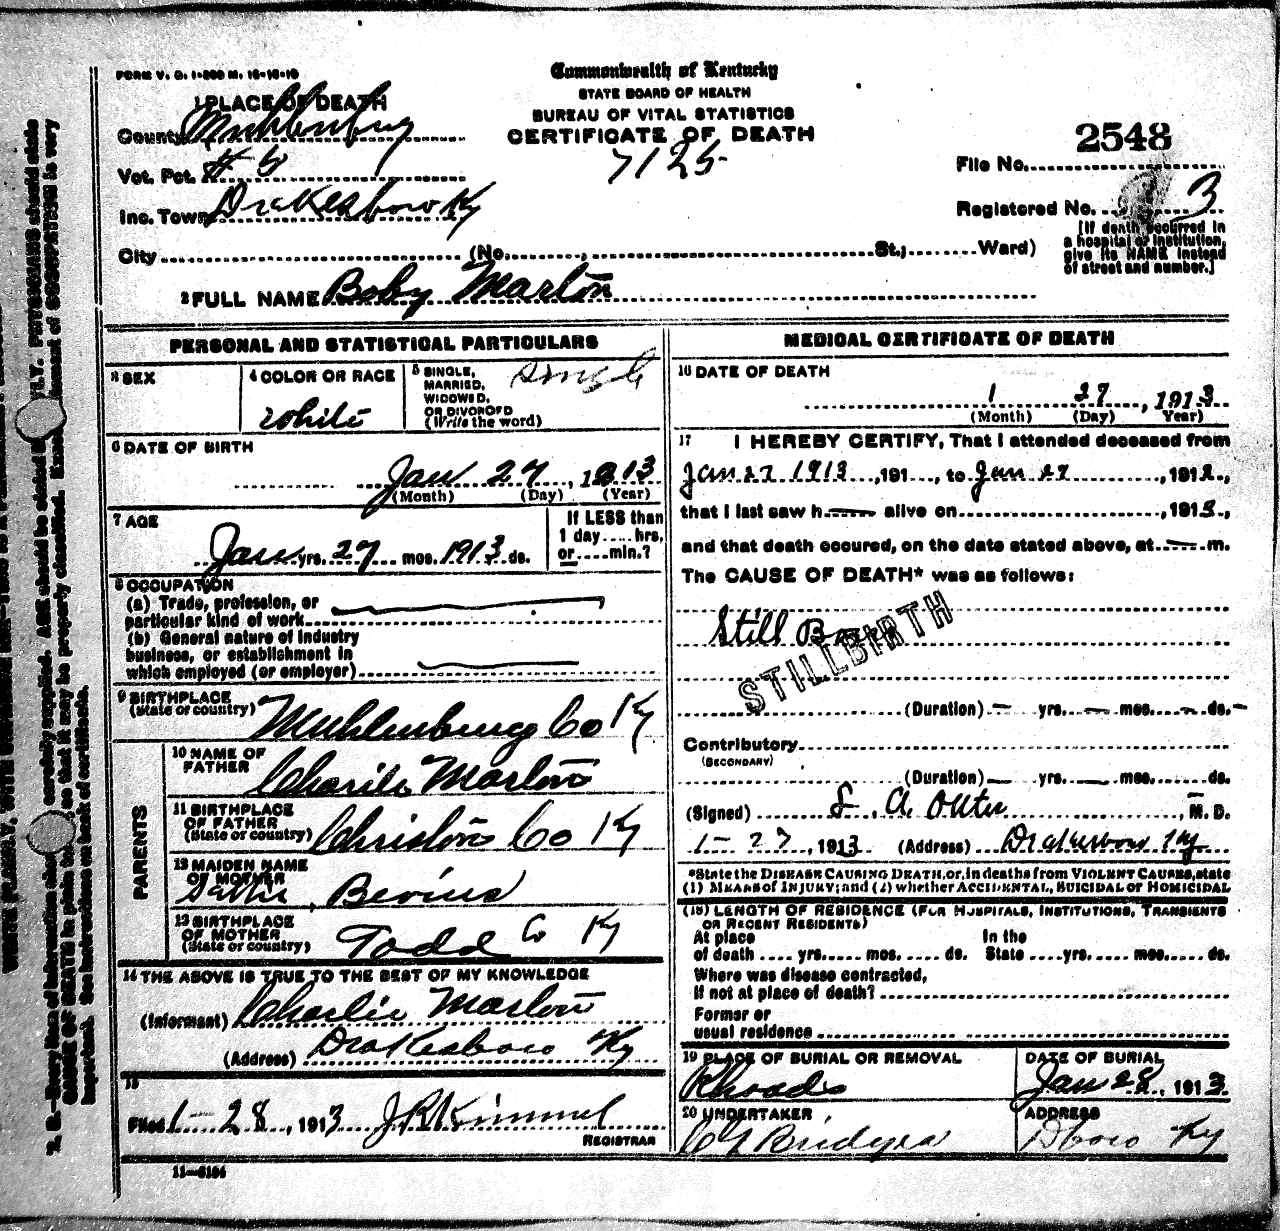 FORM V. S. 1-200 M. 10-10-10
Commonwealth of Kentucky
STATE BOARD OF HEALTH
BUREAU OF VITAL STATISTICS
CERTIFICATE OF DEATH
7125
1 PLACE OF DEATH
County Muhlenburg
Vot. Pct. # 6
Inc. Town Drakesboro Ky
City (No. , St.; Ward)
File No. 2548
Registered No. 3
[If death occurred in
a hospital or institution,
give its NAME instead
of street and number.]
2 FULL NAME Boby Marlon
PERSONAL AND STATISTICAL PARTICULARS
3 SEX
4 COLOR OR RACE
white
5 SINGLE,
MARRIED,
WIDOWED,
OR DIVORCED
(Write the word)
Single
6 DATE OF BIRTH
Jan 27, 1913
(Month) (Day) (Year)
7 AGE
Jan yrs. 27 mos. 1913 ds.
If LESS than
1 day .... hrs,
or .... min.?
8 OCCUPATION
(a) Trade, profession, or
particular kind of work
(b) General nature of industry
business, or establishment in
which employed (or employer)
9 BIRTHPLACE
(State or country) Muhlenburg Co Ky
PARENTS
10 NAME OF
FATHER Charile Marlon
11 BIRTHPLACE
OF FATHER
(State or country) Christon Co Ky
12 MAIDEN NAME
OF MOTHER
Bevins
13 BIRTHPLACE
OF MOTHER
(State or country) Todd Co Ky
14 THE ABOVE IS TRUE TO THE BEST OF MY KNOWLEDGE
(Informant) Charlie Marlon
(Address) Drakesboro Ky
15
Filed 1-28, 1913 J R Kimmel
REGISTRAR
11-6184
MEDICAL CERTIFICATE OF DEATH
16 DATE OF DEATH
1 27, 1913
(Month) (Day) Year)
17 I HEREBY CERTIFY, That I attended deceased from
Jan 27 1913, 191 , to Jan 27 , 1912,
that I last saw h— alive on , 1913,
and that death occured, on the date stated above, at — m.
The CAUSE OF DEATH* was as follows:
Still Born
STILLBIRTH
(Duration) — yrs. — mos. — ds.
Contributory
(SECONDARY)
(Duration) — yrs. — mos. ds.
(Signed) , M. D.
1-27, 1913 (Address) Drakesboro Ky
*State the DISEASE CAUSING DEATH, or, in deaths from VIOLENT CAUSES, state
(1) MEANS of INJURY; and (2) whether ACCIDENTAL, SUICIDAL or HOMICIDAL
(18) LENGTH OF RESIDENCE (FOR HOSPITALS, INSTITUTIONS, TRANSIENTS
OR RECENT RESIDENTS)
At place In the
of death .... yrs. .... mos. .... ds. State .... yrs. .... mos. .... ds.
Where was disease contracted,
If not at place of death?
Former or
usual residence
19 PLACE OF BURIAL OR REMOVAL
Rhoads
DATE OF BURIAL
Jan 28, 1913
20 UNDERTAKER
Bridges
ADDRESS
Dboro Ky